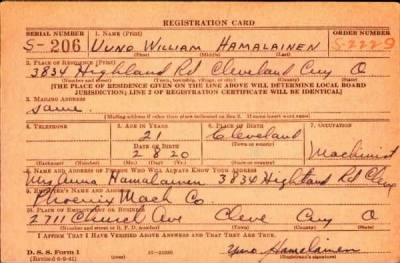 REGISTRATION CARD
SERIAL NUMBER 1. NAME (Print) ORDER NUMBER
S-206 UUNO WILLIAM HAMALAINEN S-2229
(First) (Middle) (Last)
2. PLACE OF RESIDENCE (Print)
3834 Highland Rd Cleveland Cuy O
(Number and street) (Town, township, village, or city) (County) (State)
[THE PLACE OF RESIDENCE GIVEN ON THE LINE ABOVE WILL DETERMINE LOCAL BOARD
JURISDICTION; LINE 2 OF REGISTRATION CERTIFICATE WILL BE IDENTICAL]
3. MAILING ADDRESS
Same
[Mailing address if other than place indicated on line 2. If same insert word same]
4. TELEPHONE 5. AGE IN YEARS 6. PLACE OF BIRTH 7. OCCUPATION
21 Cleveland
DATE OF BIRTH (Town or county) Machinist
20
(Exchange) (Number) (Mo.) (Day) (Yr.) (State or country)
8. NAME AND ADDRESS OF PERSON WHO WILL ALWAYS KNOW YOUR ADDRESS
Mrs Hamalainen 3834 Highland Rd Cleve
9. EMPLOYER'S NAME AND ADDRESS
Phoenix Mach Co.
10. PLACE OF EMPLOYMENT OR BUSINESS
2711 Church Ave Cleve Cuy O
(Number and street or R. F. D. number) (Town) (County) (State)
I AFFIRM THAT I HAVE VERIFIED ABOVE ANSWERS AND THAT THEY ARE TRUE.
D. S. S. Form 1 Uuno Hamalainen
(Registrant's signature)